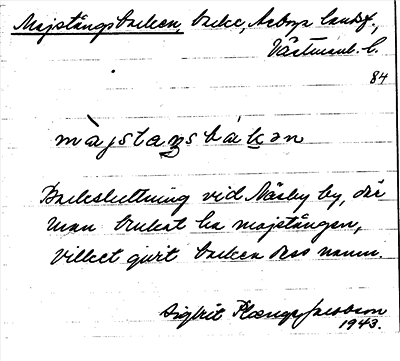 Majstångsbacken, backe, Arboga landsf.,
Västmanl. l.
84
màjstaŋsbákən
Backsluttning vid Näsby by, där
man brukat ha majstången,
vilket givit backen dess namn.
Sigbrit Plænge Jacobson
1943.